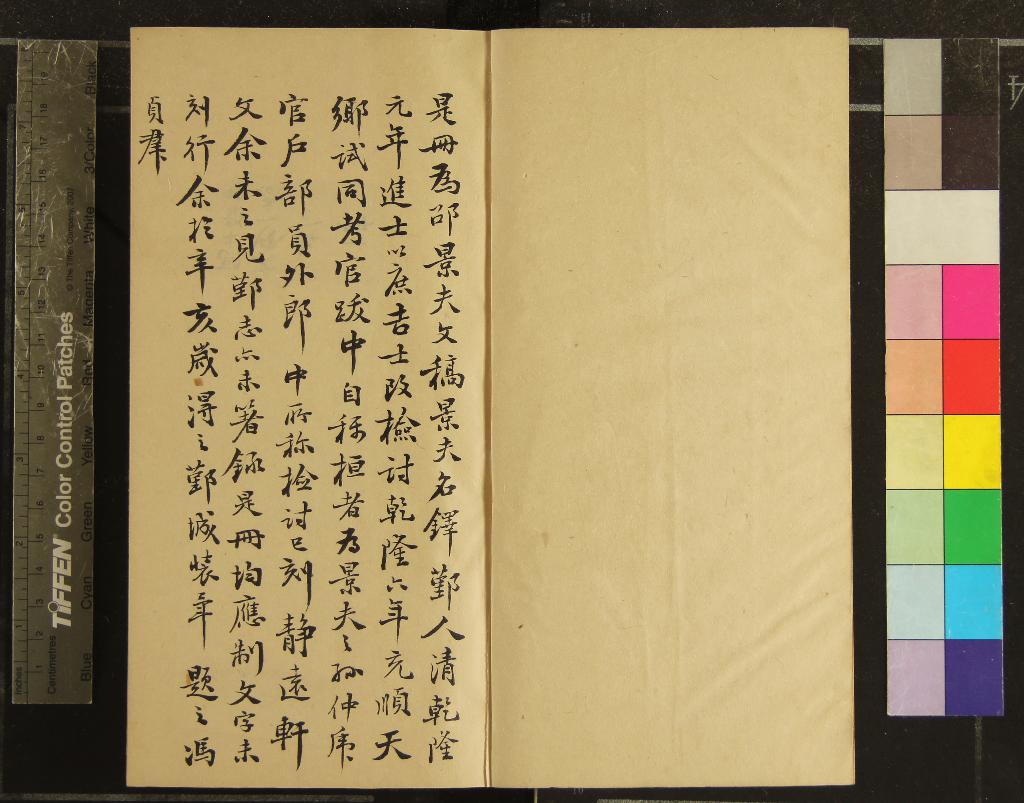 是冊為邵景夫文稿景夫名鐸鄞人清乾隆
元年進士以庶吉士改檢討乾隆六年充順天
鄉試同考官跋中自称桓者為景夫之孫仲虎
官戶部員外郎中所称檢討已刻靜遠軒
文余未之見鄞志亦未箸錄是冊均應制文字未
刻行余於辛亥歲得之鄞城裝年題之馮
貞羣
Inches
Centimetres
TIFFEN Color Control Patches
© The Tiffen Company, 2007
Blue Cyan Green Yellow Red Magenta White 3/Color Black